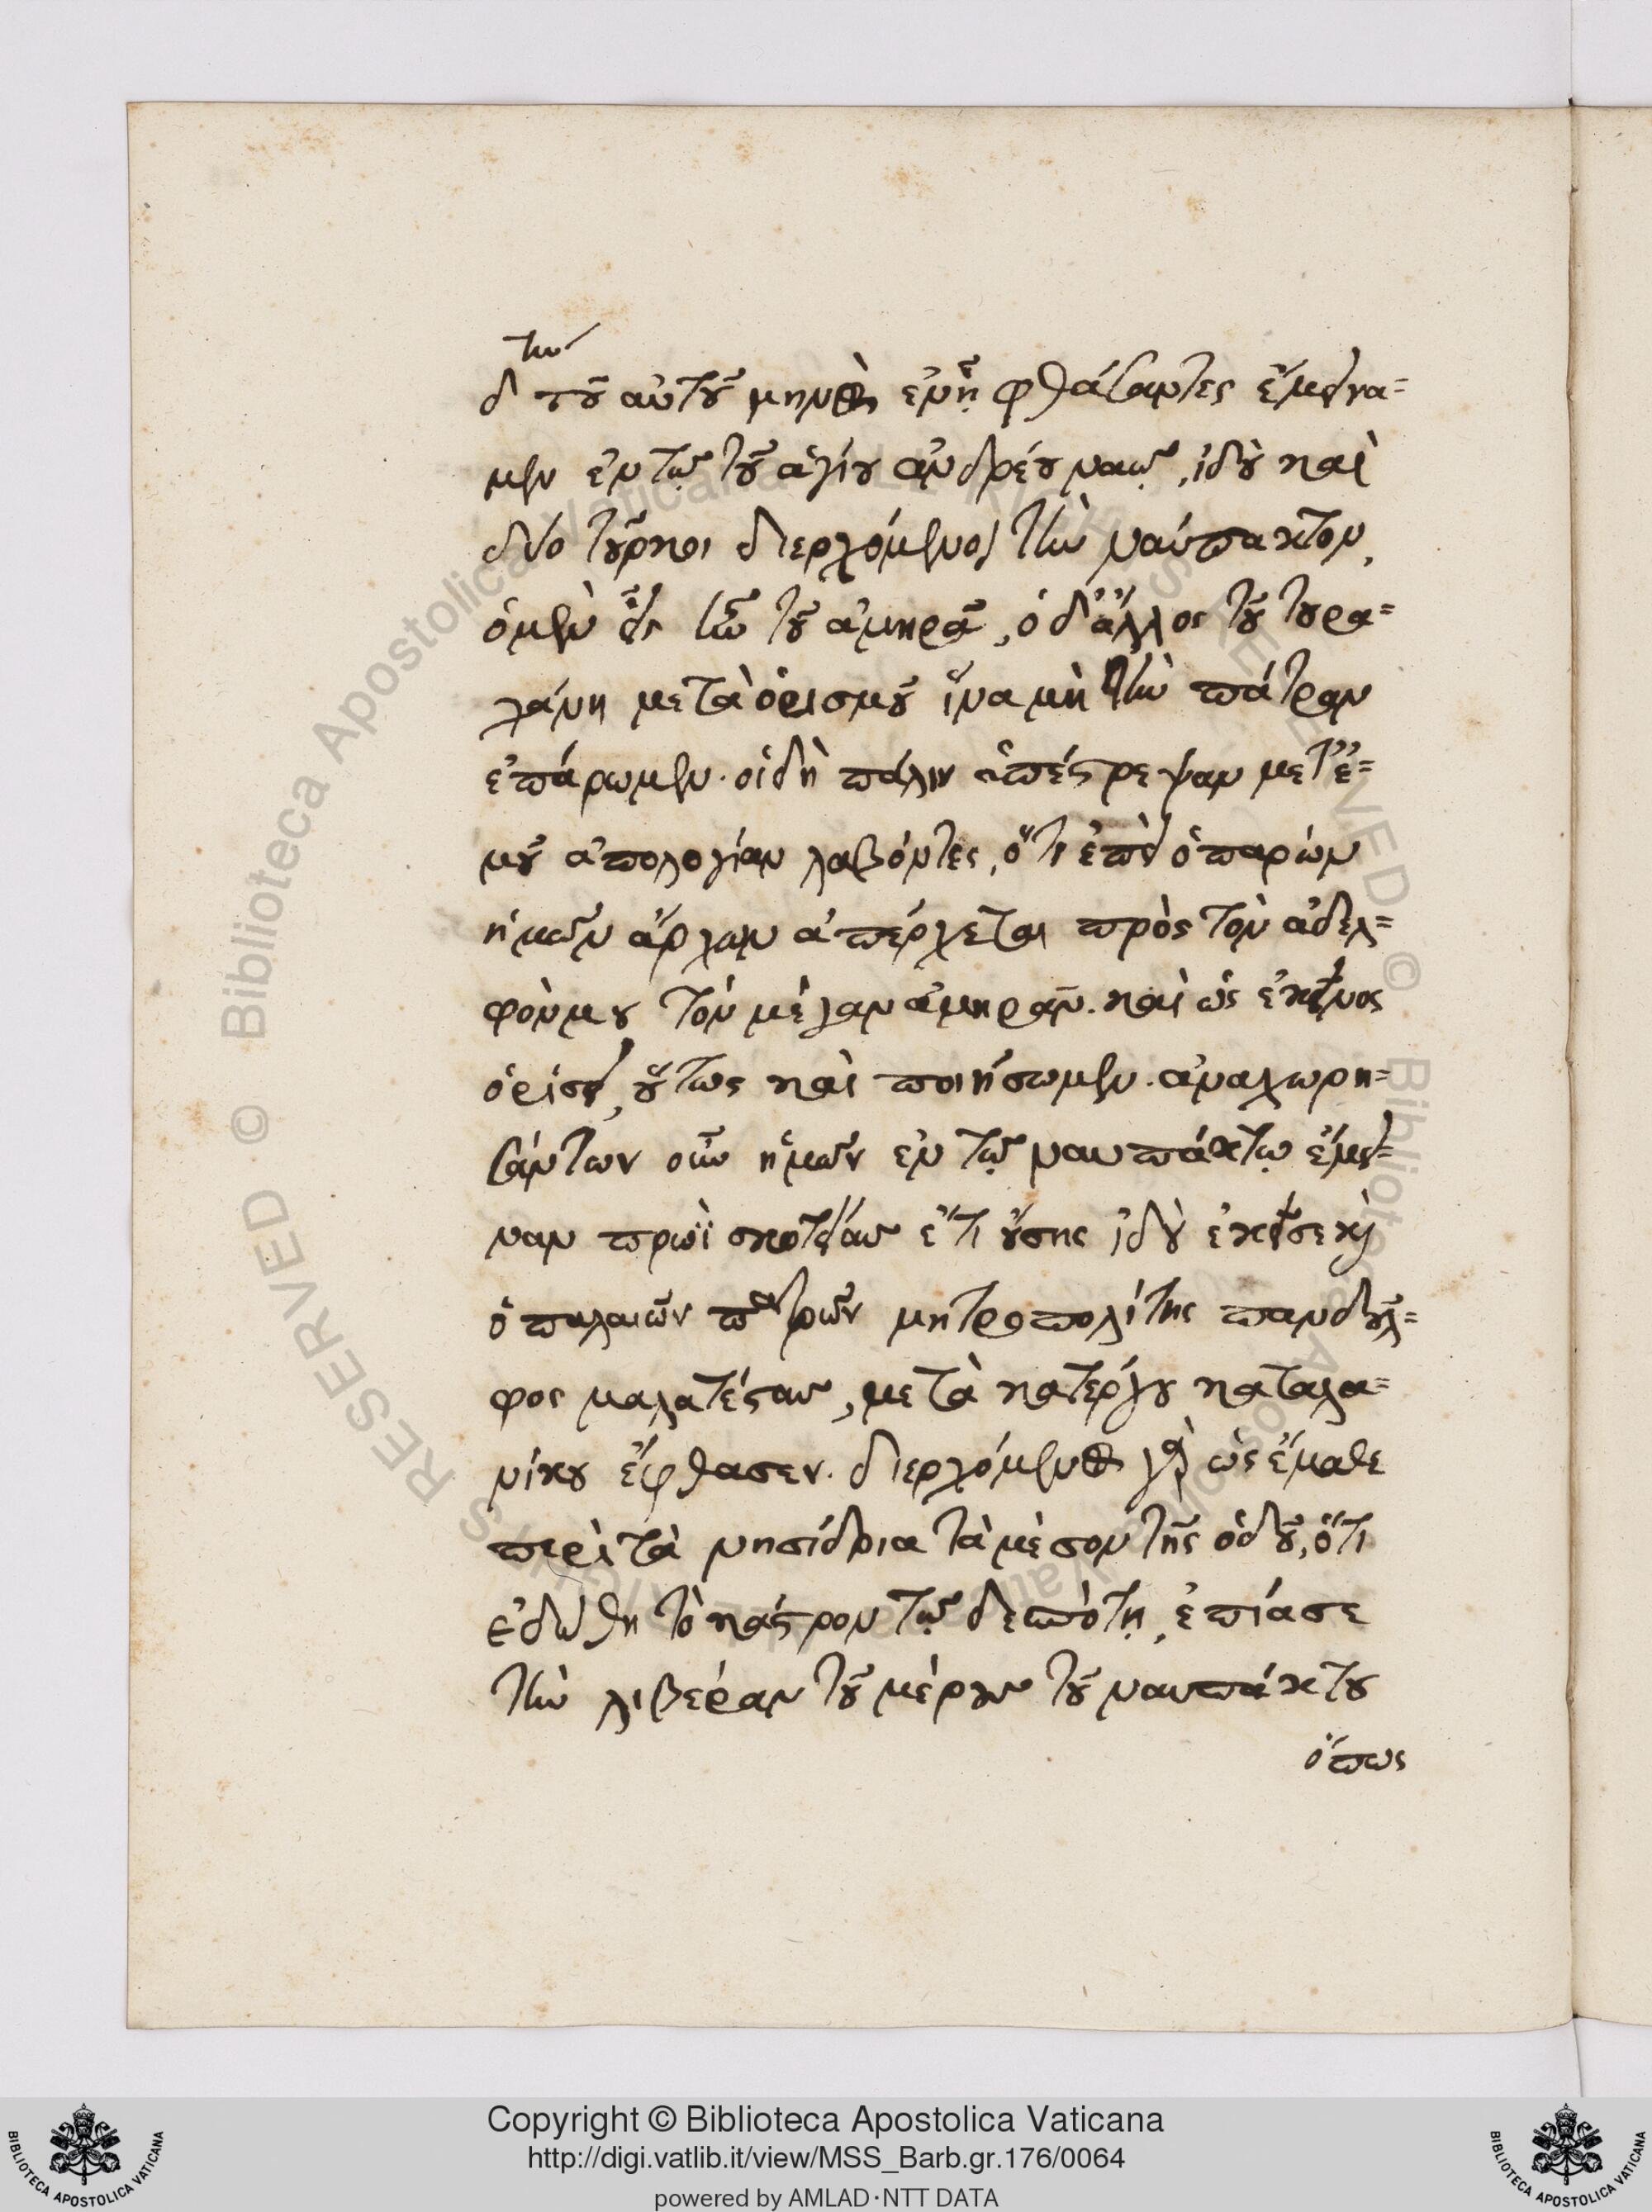 τὴν
δ τοῦ αὐτοῦ μηνὸς ἐν ᾗ φθάσαντες ἐμείνα=
μεν ἐν τῷ τοῦ ἁγίου ἀνδρέου ναῷ, ἰδοὺ καὶ
δύο τοῦρκοι διερχόμενοι τὴν ναύπακτον,
ὁ μὲν εἷς ἦν τοῦ ἀμηρᾶ, ὁ δ' ἄλλος τοῦ τουρα=
χάνη μετὰ ὁρισμοῦ ἵνα μὴ τὴν πάτραν
ἐπάρωμεν. οἱ δὴ πάλιν ὑπέστρεψαν μετ' ἐ=
μοῦ ἀπολογίαν λαβόντες, ὅτι ἐπεὶ ὁ παρὼν
ἡμῶν ἄρχων ἀπέρχεται πρὸς τὸν ἀδελ=
φόν μου τὸν μέγαν ἀμηρᾶν. καὶ ὡς ἐκεῖνος
ὁρίσει, οὕτως καὶ ποιήσωμεν. ἀναχωρη=
σάντων οὖν ἡμῶν ἐν τῷ ναυπάκτῳ ἔμει=
ναν πρωῒ σκοτείας ἔτι οὔσης ἰδοὺ ἐκεῖσε κὶ
ὁ παλαιῶν πατρῶν μητροπολίτης πανδοῦλ=
φος μαλατέστας, μετὰ κατέργου καταλα=
νίκου ἔφθασεν. διερχόμενος γὰρ ὡς ἔμαθε
περὶ τὰ νησίδρια τὰ μέσον τῆς ὁδοῦ, ὅτι
ἐδώθη τὸ κάστρον τῷ δεσπότῃ, ἐπίασε
τὴν λιβέραν τοῦ μέρους τοῦ ναυπάκτου
ὅπως
Copyright © Biblioteca Apostolica Vaticana
http://digi.vatlib.it/view/MSS_Barb.gr.176/0064
powered by AMLAD·NTT DATA